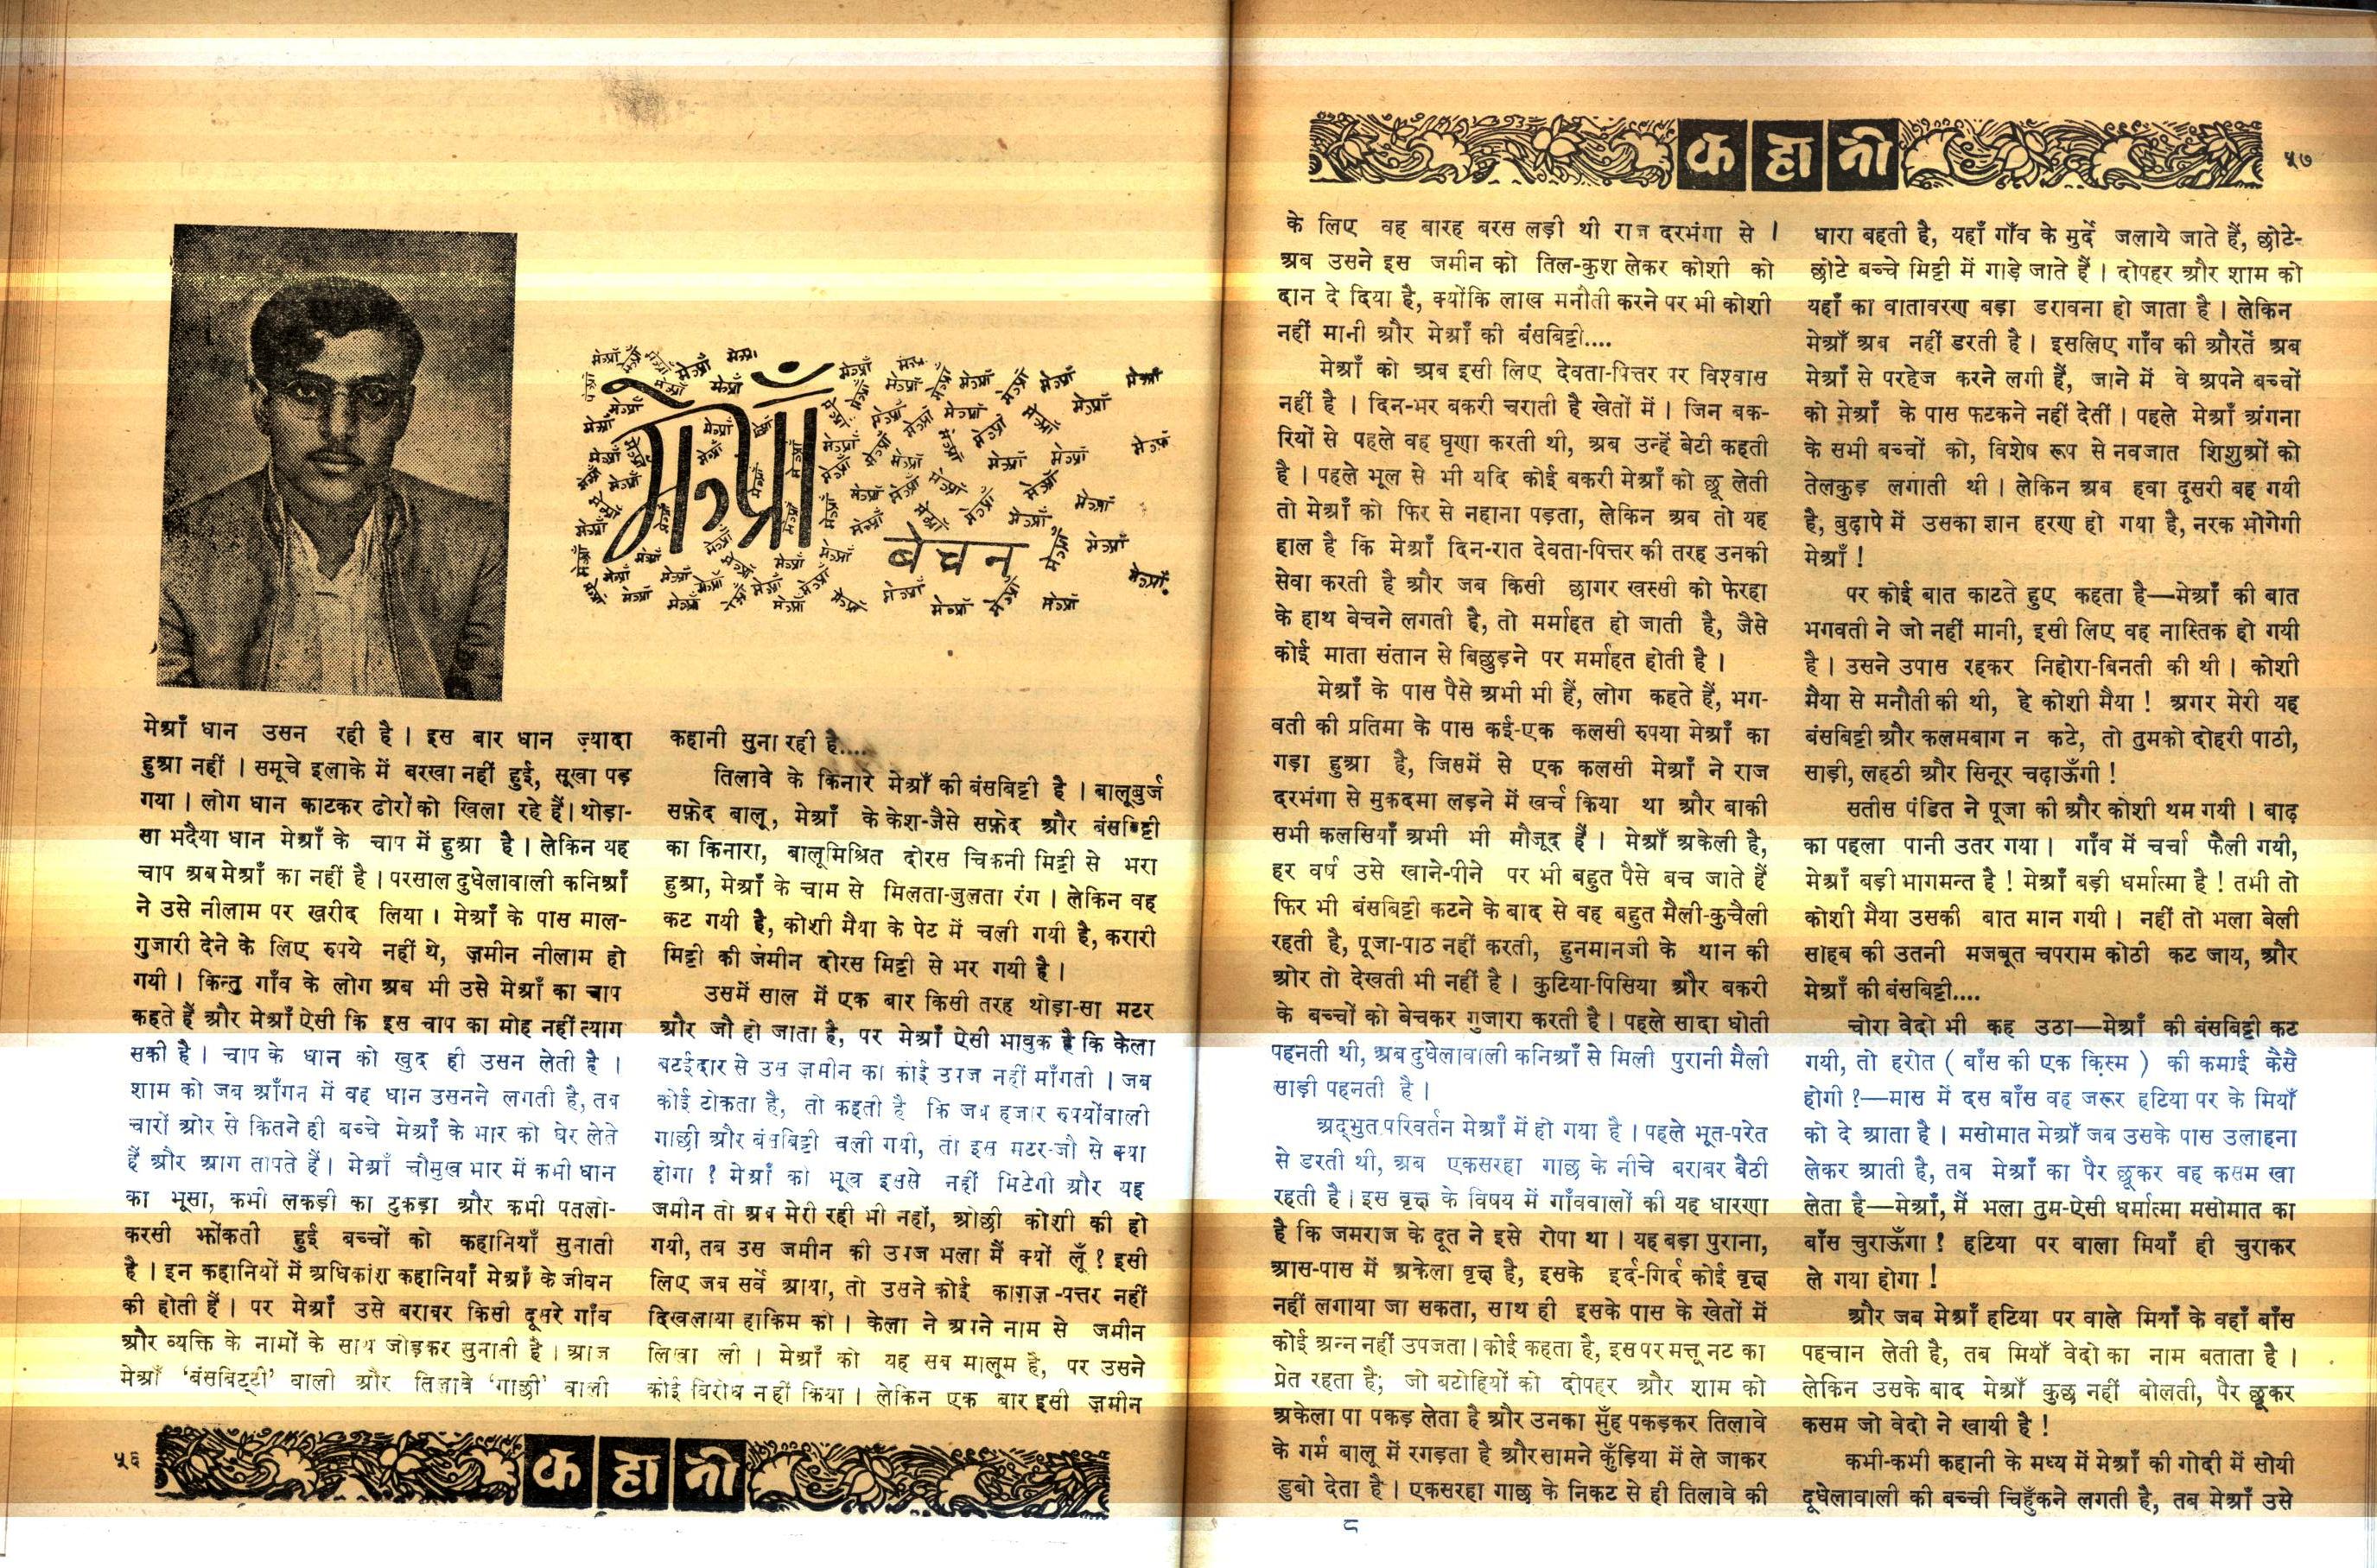 मेआँ
बेचन
मेआँ धान उसन रही है । इस बार धान ज़्यादा
हुआ नहीं । समूचे इलाके में बरखा नहीं हुई, सूखा पड़
गया । लोग धान काटकर ढोरों को खिला रहे हैं। थोड़ा-
सा भदैया धान मेआँ के चाप में हुआ है । लेकिन यह
चाप अब मेआँ का नहीं है । परसाल दुधेलावाली कनिआँ
ने उसे नीलाम पर खरीद लिया । मेआँ के पास माल-
गुजारी देने के लिए रुपये नहीं थे, ज़मीन नीलाम हो
गयी । किन्तु गाँव के लोग अब भी उसे मेआँ का चाप
कहते हैं और मेआँ ऐसी कि इस चाप का मोह नहीं त्याग
सकी है । चाप के धान को खुद ही उसन लेती है ।
शाम को जब आँगन में वह धान उसनने लगती है, तब
चारों ओर से कितने ही बच्चे मेआँ के भार को घेर लेते
हैं और आग तापते हैं । मेआँ चौमुख भार में कभी धान
का भूसा, कभी लकड़ी का टुकड़ा और कभी पतलो-
करसी झोंकती हुई बच्चों को कहानियाँ सुनाती
है । इन कहानियों में अधिकांश कहानियाँ मेआँ के जीवन
की होती हैं । पर मेआँ उसे बराबर किसी दूसरे गाँव
और व्यक्ति के नामों के साथ जोड़कर सुनाती है । आज
मेआँ ‘बंसबिट्टी’ वाली और तिलावे ‘गाछी’ वाली
कहानी सुना रही है....
तिलावे के किनारे मेआँ की बंसबिट्टी है । बालूबुर्ज
सफ़ेद बालू, मेआँ के केश-जैसे सफ़ेद और बंसबिट्टी
का किनारा, बालूमिश्रित दोरस चिकनी मिट्टी से भरा
हुआ, मेआँ के चाम से मिलता-जुलता रंग । लेकिन वह
कट गयी है, कोशी मैया के पेट में चली गयी है, करारी
मिट्टी की जमीन दोरस मिट्टी से भर गयी है ।
उसमें साल में एक बार किसी तरह थोड़ा-सा मटर
और जौ हो जाता है, पर मेआँ ऐसी भावुक है कि केला
बटईदार से उस ज़मीन का कोई उपज नहीं माँगती । जब
कोई टोकता है, तो कहती है कि जब हजार रुपयोंवाली
गाछी और बंसबिट्टी चली गयी, तो इस मटर-जौ से क्या
होगा ? मेआँ की भूख इससे नहीं मिटेगी और यह
जमीन तो अब मेरी रही भी नहीं, ओछी कोशी की हो
गयी, तब उस जमीन की उपज भला मैं क्यों लूँ ? इसी
लिए जब सर्वे आया, तो उसने कोई काग़ज़-पत्तर नहीं
दिखलाया हाकिम को । केला ने अपने नाम से जमीन
लिखा ली । मेआँ को यह सब मालूम है, पर उसने
कोई विरोध नहीं किया । लेकिन एक बार इसी ज़मीन
५६
क हा नी
क हा नी
५७
के लिए वह बारह बरस लड़ी थी राज दरभंगा से ।
अब उसने इस जमीन को तिल-कुश लेकर कोशी को
दान दे दिया है, क्योंकि लाख मनौती करने पर भी कोशी
नहीं मानी और मेआँ की बंसबिट्टी....
मेआँ को अब इसी लिए देवता-पित्तर पर विश्वास
नहीं है । दिन-भर बकरी चराती है खेतों में । जिन बक-
रियों से पहले वह घृणा करती थी, अब उन्हें बेटी कहती
है । पहले भूल से भी यदि कोई बकरी मेआँ को छू लेती
तो मेआँ को फिर से नहाना पड़ता, लेकिन अब तो यह
हाल है कि मेआँ दिन-रात देवता-पित्तर की तरह उनकी
सेवा करती है और जब किसी छागर खस्सी को फेरहा
के हाथ बेचने लगती है, तो मर्माहत हो जाती है, जैसे
कोई माता संतान से बिछुड़ने पर मर्माहत होती है ।
मेआँ के पास पैसे अभी भी हैं, लोग कहते हैं, भग-
वती की प्रतिमा के पास कई-एक कलसी रुपया मेआँ का
गड़ा हुआ है, जिसमें से एक कलसी मेआँ ने राज
दरभंगा से मुकदमा लड़ने में खर्च किया था और बाकी
सभी कलसियाँ अभी भी मौजूद हैं । मेआँ अकेली है,
हर वर्ष उसे खाने-पीने पर भी बहुत पैसे बच जाते हैं
फिर भी बंसबिट्टी कटने के बाद से वह बहुत मैली-कुचैली
रहती है, पूजा-पाठ नहीं करती, हुनमानजी के थान की
ओर तो देखती भी नहीं है । कुटिया-पिसिया और बकरी
के बच्चों को बेचकर गुजारा करती है । पहले सादा धोती
पहनती थी, अब दुधेलावाली कनिआँ से मिली पुरानी मैली
साड़ी पहनती है ।
अद्भुत परिवर्तन मेआँ में हो गया है । पहले भूत-परेत
से डरती थी, अब एकसरहा गाछ के नीचे बराबर बैठी
रहती है । इस वृक्ष के विषय में गाँववालों की यह धारणा
है कि जमराज के दूत ने इसे रोपा था । यह बड़ा पुराना,
आस-पास में अकेला वृक्ष है, इसके इर्द-गिर्द कोई वृक्ष
नहीं लगाया जा सकता, साथ ही इसके पास के खेतों में
कोई अन्न नहीं उपजता। कोई कहता है, इस पर मत्तू नट का
प्रेत रहता है; जो बटोहियों को दोपहर और शाम को
अकेला पा पकड़ लेता है और उनका मुँह पकड़कर तिलावे
के गर्म बालू में रगड़ता है और सामने कुँड़िया में ले जाकर
डुबो देता है । एकसरहा गाछ के निकट से ही तिलावे की
८
धारा बहती है, यहाँ गाँव के मुर्दे जलाये जाते हैं, छोटे-
छोटे बच्चे मिट्टी में गाड़े जाते हैं । दोपहर और शाम को
यहाँ का वातावरण बड़ा डरावना हो जाता है । लेकिन
मेआँ अब नहीं डरती है । इसलिए गाँव की औरतें अब
मेआँ से परहेज करने लगी हैं, जाने में वे अपने बच्चों
को मेआँ के पास फटकने नहीं देतीं । पहले मेआँ अंगना
के सभी बच्चों को, विशेष रूप से नवजात शिशुओं को
तेलकुड़ लगाती थी । लेकिन अब हवा दूसरी बह गयी
है, बुढ़ापे में उसका ज्ञान हरण हो गया है, नरक भोगेगी
मेआँ !
पर कोई बात काटते हुए कहता है—मेआँ की बात
भगवती ने जो नहीं मानी, इसी लिए वह नास्तिक हो गयी
है । उसने उपास रहकर निहोरा-बिनती की थी । कोशी
मैया से मनौती की थी, हे कोशी मैया ! अगर मेरी यह
बंसबिट्टी और कलमबाग न कटे, तो तुमको दोहरी पाठी,
साड़ी, लहठी और सिनूर चढ़ाऊँगी !
सतीस पंडित ने पूजा की और कोशी थम गयी । बाढ़
का पहला पानी उतर गया । गाँव में चर्चा फैली गयी,
मेआँ बड़ी भागमन्त है ! मेआँ बड़ी धर्मात्मा है ! तभी तो
कोशी मैया उसकी बात मान गयी । नहीं तो भला बेली
साहब की उतनी मजबूत चपराम कोठी कट जाय, और
मेआँ की बंसबिट्टी....
चोरा वेदो भी कह उठा—मेआँ की बंसबिट्टी कट
गयी, तो हरोत ( बाँस की एक क़िस्म ) की कमाई कैसै
होगी ?—मास में दस बाँस वह जरूर हटिया पर के मियाँ
को दे आता है । मसोमात मेआँ जब उसके पास उलाहना
लेकर आती है, तब मेआँ का पैर छूकर वह कसम खा
लेता है—मेआँ, मैं भला तुम-ऐसी धर्मात्मा मसोमात का
बाँस चुराऊँगा ! हटिया पर वाला मियाँ ही चुराकर
ले गया होगा !
और जब मेआँ हटिया पर वाले मियाँ के वहाँ बाँस
पहचान लेती है, तब मियाँ वेदो का नाम बताता है ।
लेकिन उसके बाद मेआँ कुछ नहीं बोलती, पैर छूकर
कसम जो वेदो ने खायी है !
कभी-कभी कहानी के मध्य में मेआँ की गोदी में सोयी
दूधेलावाली की बच्ची चिहुँकने लगती है, तब मेआँ उसे